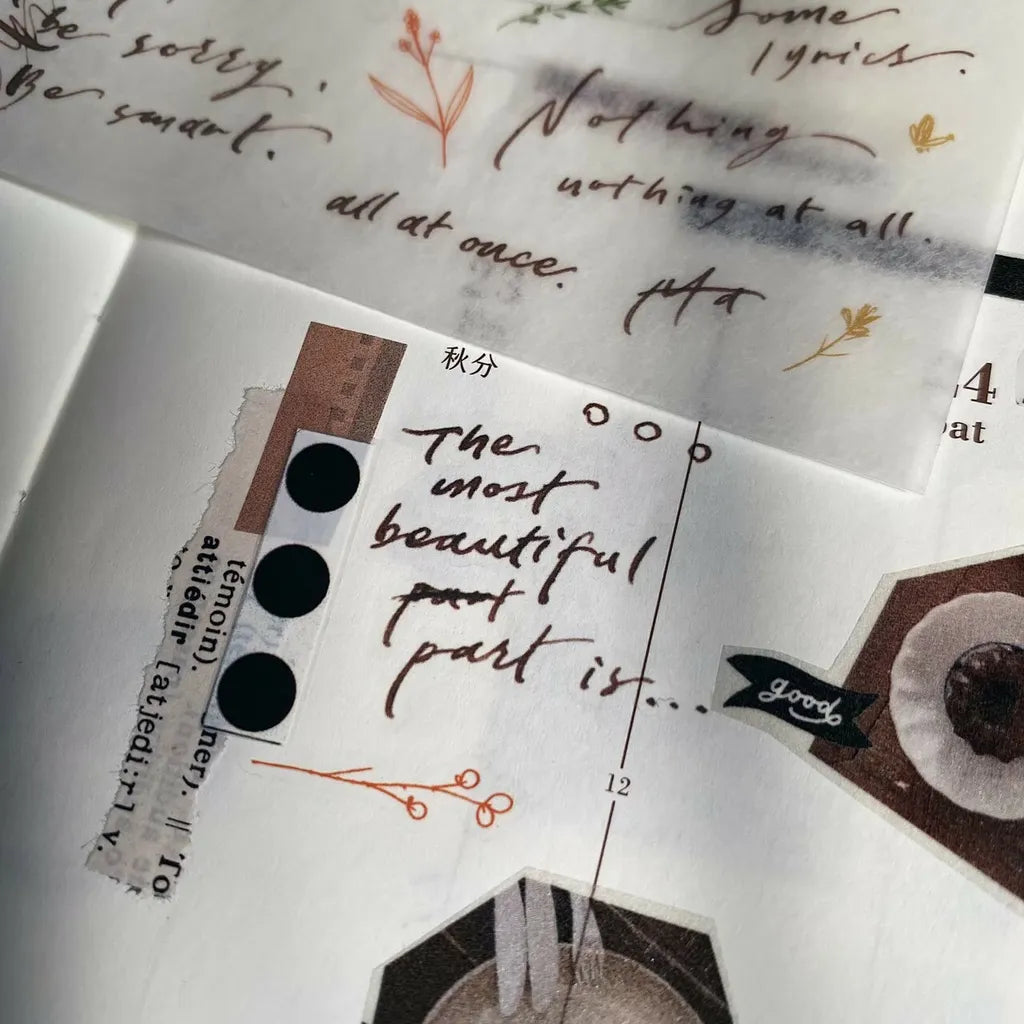 Be sorry.
Be smart.
Some
lyrics.
Nothing
nothing at all.
all at once.
秋分
4
at
The
most
beautiful
part
part is...
good
12
témoin).
attiédir [atjedi:r] v.
ner), || To